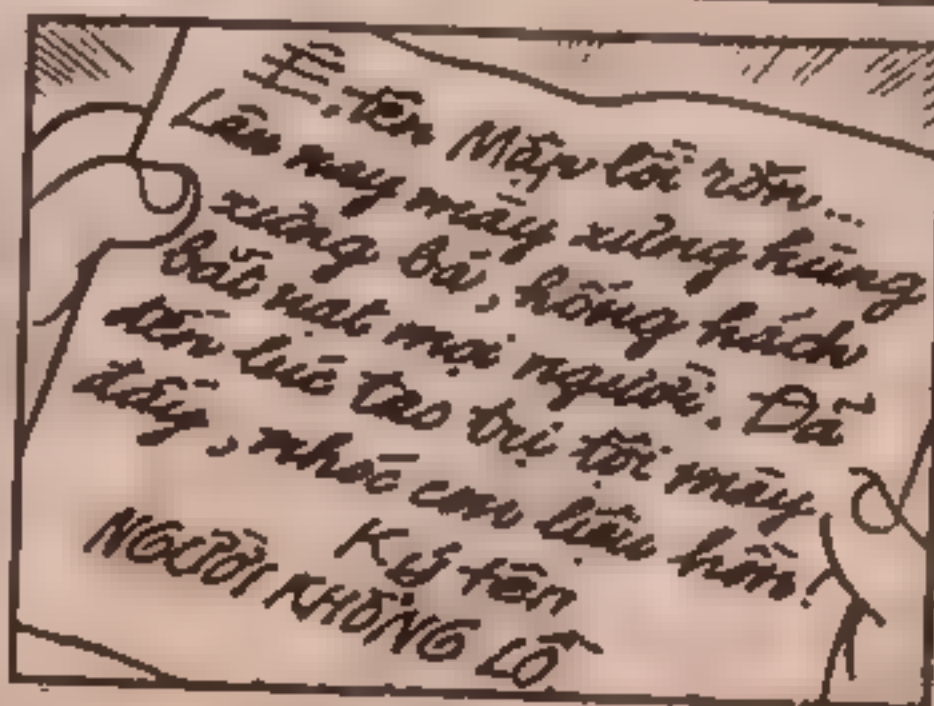 Ê, tên Mập lồi rốn...
Lâu nay mày xưng hùng
xưng bá, hống hách
bắt nạt mọi người. Đã
đến lúc tao trị tội mày
đấy, nhóc con liệu hồn!
Ký tên
NGƯỜI KHỔNG LỒ